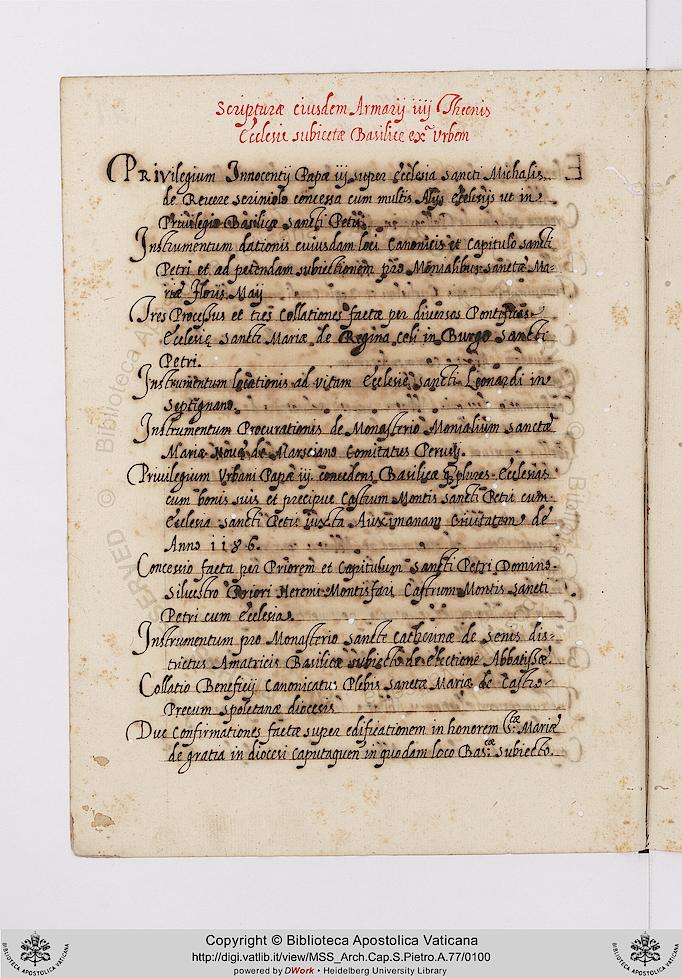 Scripturæ eiusdem Armarij iiij Thecnis
Ecclesie subiectæ Basilice exª Urbem
PRIVilegium Innocentij Papæ iij super Ecclesia sancti Michælis
de Revere seriniolo concessa cum multis Alijs Ecclesijs ut in
Privilegio Basilicæ sancti Petri
Instrumentum dationis cuiusdam loci Canonicis et Capitulo sancti
Petri et ad petendam subiectionem pro Monialibus sanctæ Ma=
riæ Floris Maij
Tres Processus et tres Collationes factæ per diversos Pontifices
Ecclesię sanctæ Mariæ de Regina celi in Burgo sancti
Petri.
Instrumentum locationis ad vitam Ecclesie sancti Leonardi in
Septignano.
Instrumentum Procurationis de Monasterio Monialium sanctæ
Mariæ Novæ de Marsciano Comitatus Perusij.
Privilegium Urbani Papæ iij concedens Basilicæ plures Ecclesias
cum bonis suis et precipue Castrum Montis sancti Petri cum
Ecclesia sancti Petri iuxta Auximanam Civitatem de
Anno 1186.
Concessio facta per Priorem et Capitulum sancti Petri Domino
Silvestro Priori Heremi Montisfani Castrum Montis sancti
Petri cum Ecclesia.
Instrumentum pro Monasterio sanctæ Catherinæ de Senis dis=
trictus Amatricis Basilicæ subiecto de electione Abbatissæ.
Collatio Beneficij Canonicatus Plebis sanctæ Mariæ de Castro
Precum spoletanæ diocesis
Due Confirmationes factæ super edificationem in honorem S.tæ Mariæ
de gratia in diocesi Caputaquen in quodam loco Bas.cæ subiecto.
Copyright © Biblioteca Apostolica Vaticana
http://digi.vatlib.it/view/MSS_Arch.Cap.S.Pietro.A.77/0100
powered by DWork • Heidelberg University Library